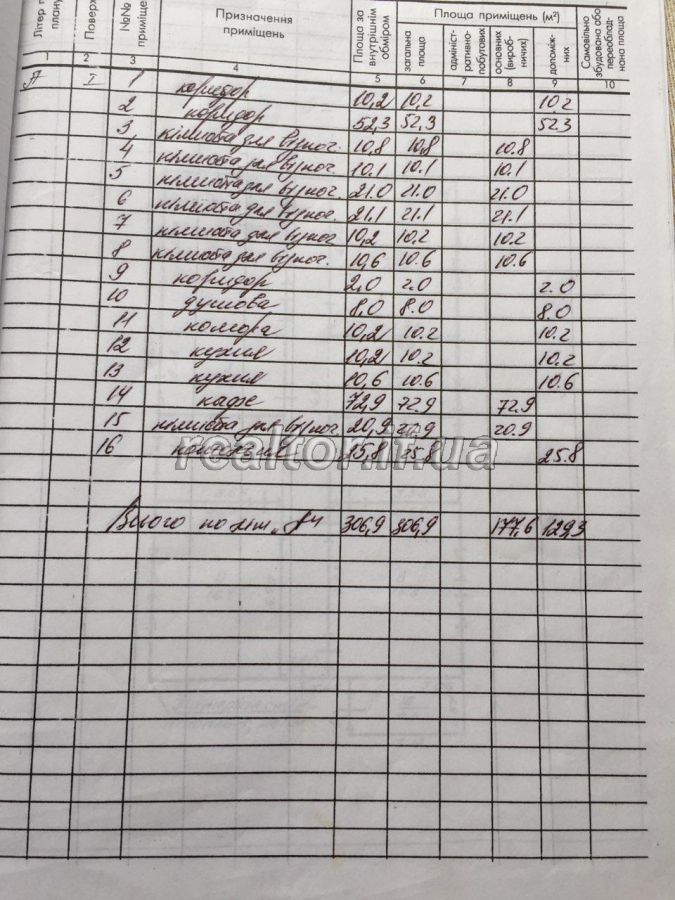 Літер п
плану
Поверх
№№
приміще
Призначення
приміщень
Площа за
внутрішнім
обміром
Площа приміщень (м²)
загальна
площа
адмініст-
ративно-
побутових
основних
(вироб-
ничих)
допоміж-
них
Самовільно
збудована або
переоблад-
нана площа
1 2 3 4 5 6 7 8 9 10
А I 1 коридор 10,2 10,2 10.2
2 коридор 52,3 52,3 52.3
3 кімната для відпоч. 10,8 10,8 10.8
4 кімната для відпоч. 10.1 10.1 10.1
5 кімната для відпоч. 21.0 21.0 21.0
6 кімната для відпоч. 21,1 21.1 21.1
7 кімната для відпоч 10,2 10,2 10.2
8 кімната для відпоч. 10,6 10.6 10.6
9 коридор 2,0 2.0 2.0
10 душова 8,0 8.0 8.0
11 комора 10,2 10.2 10.2
12 кухня 10,2 10,2 10.2
13 кухня 10,6 10.6 10.6
14 кафе 72,9 72.9 72.9
15 кімната для відпоч 20,9 20.9 20.9
16 25,8 25.8 25.8
realtor.if.ua
Всього по літ. 306,9 306,9 177,6 129,3